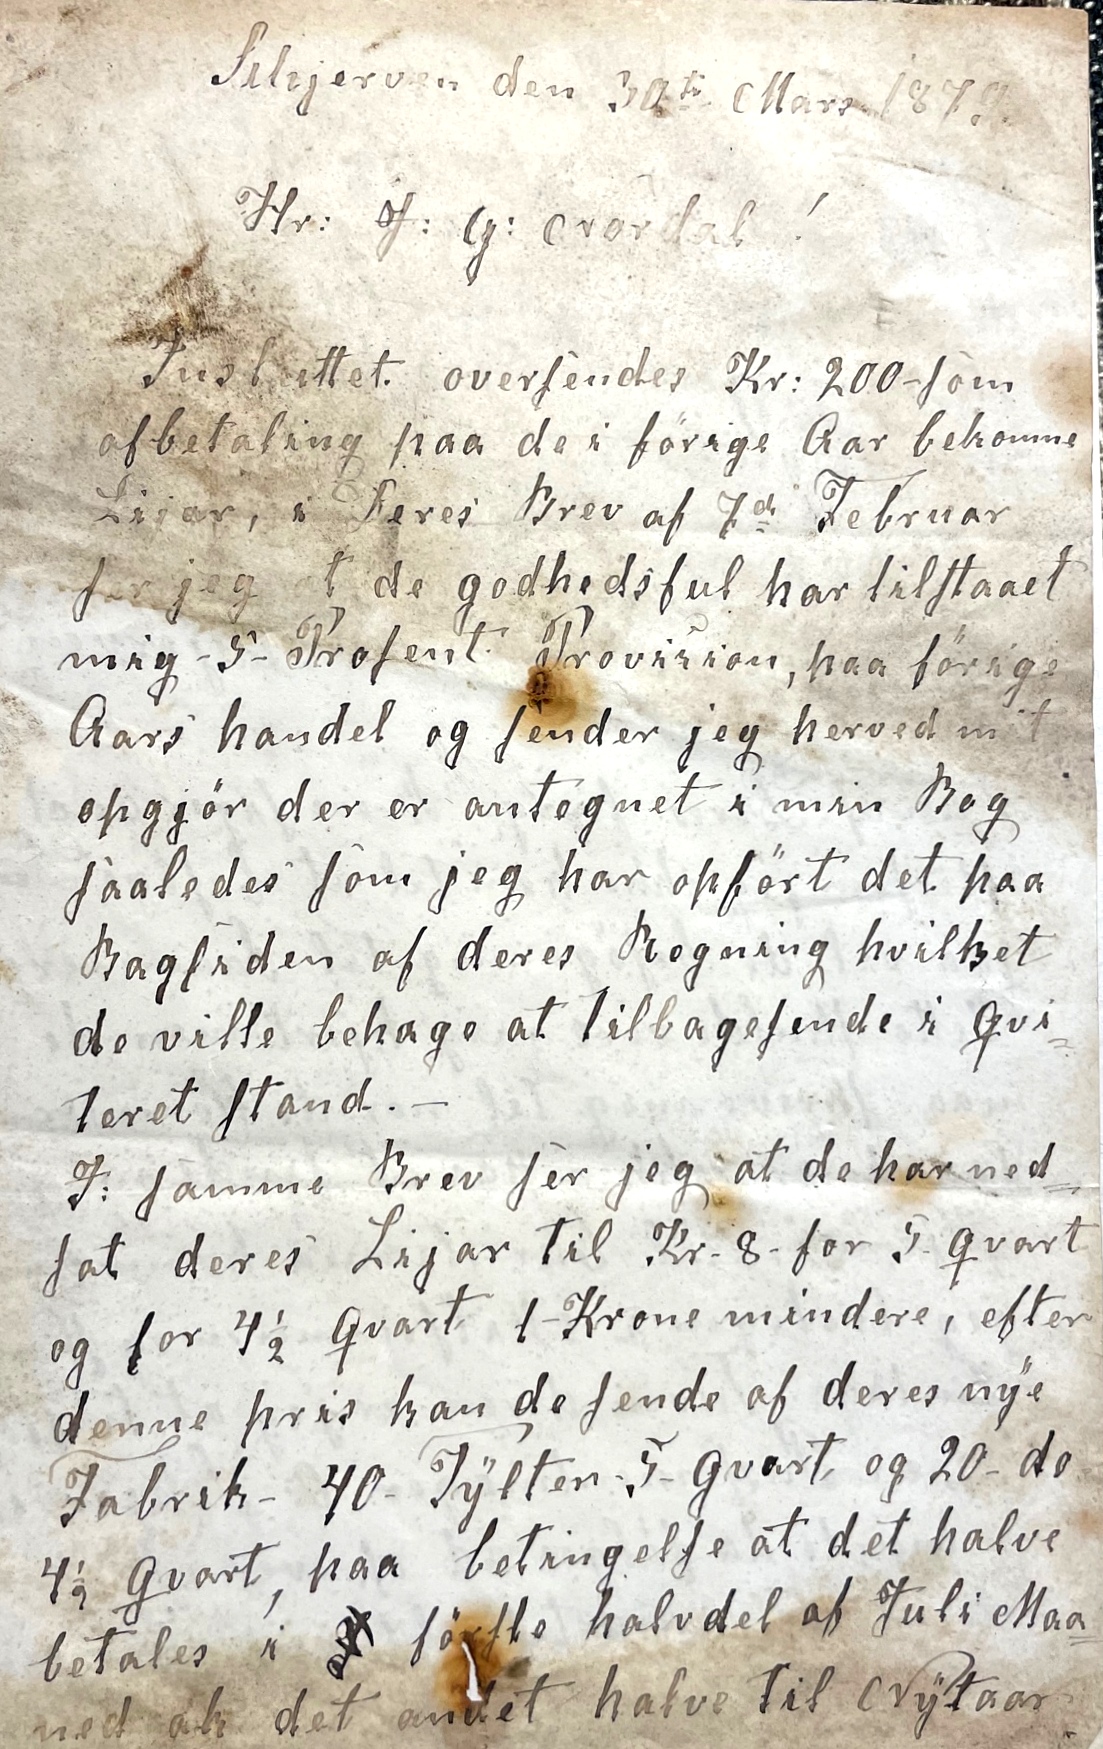 Skjerven den 30te Mars 1879.
Hr: J: G: Nordal!
Insluttet oversendes Kr: 200 - som
afbetaling paa de i förige Aar bekomne
Lijar, i Deres Brev af 7de Februar
ser jeg at de godhedsful har tilstaaet
mig - 5 - Prosent Provision, paa förige
Aars handel og sender jeg herved mit
opgjör der er antegnet i min Bog
saaledes som jeg har opfört det paa
Bagsiden af deres Regning hvilket
de ville behage at tilbagesende i qvi=
teret stand. —
I: samme Brev ser jeg at de har ned=
sat deres Lijar til Kr - 8 - for 5 - qvart
og for 4½ qvart 1 - Krone mindere, efter
denne pris kan de sende af deres nÿe
Fabrik - 40 - Tÿlter - 5 - qvart og 20 - do
4½ qvart, paa betingelse at det halve
betales i förste halvdel af Juli Maa=
ned ok det andet halve til Nÿtaar